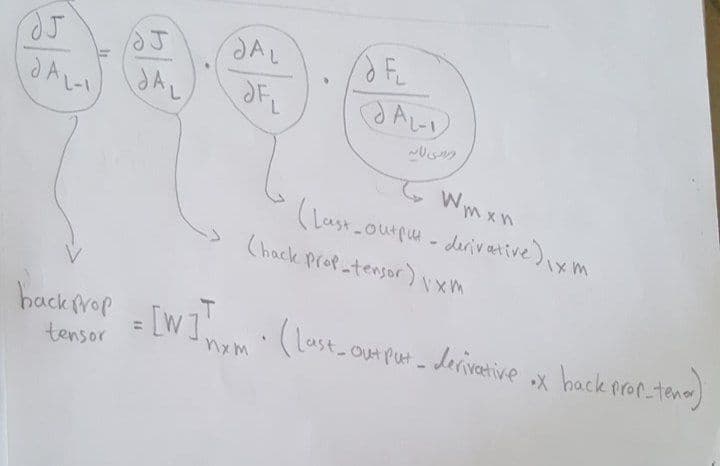 ∂J/∂A_{L-1} = ∂J/∂A_L · ∂A_L/∂F_L · ∂F_L/∂A_{L-1}
ورودی لایه
W_{m×n}
(Last_output_derivative)_{1×m}
(backprop_tensor)_{1×m}
backprop tensor = [W]^T_{n×m} · (Last_output_derivative .× backprop_tenor)